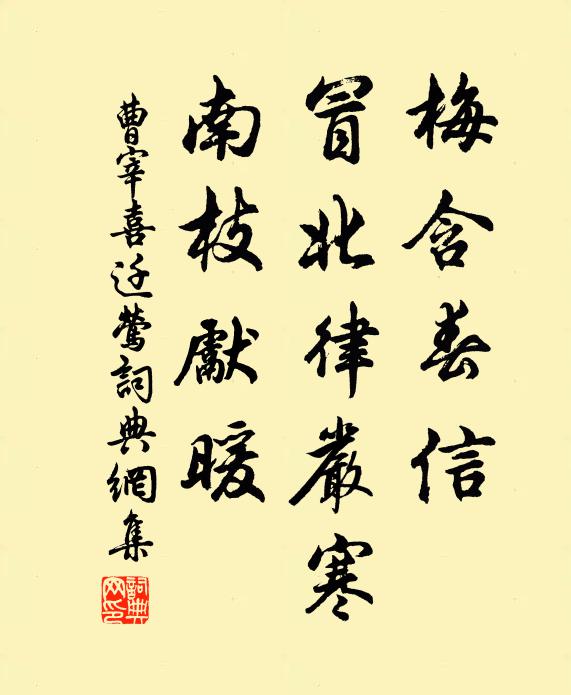 梅含春信
冒北律嚴寒
南枝獻暖
曹宰喜迁鶯詞典網集
詞典網印